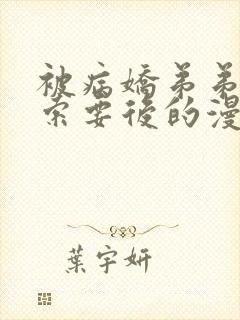 被病嬌弟弟
索要後的漫
葉宇妍